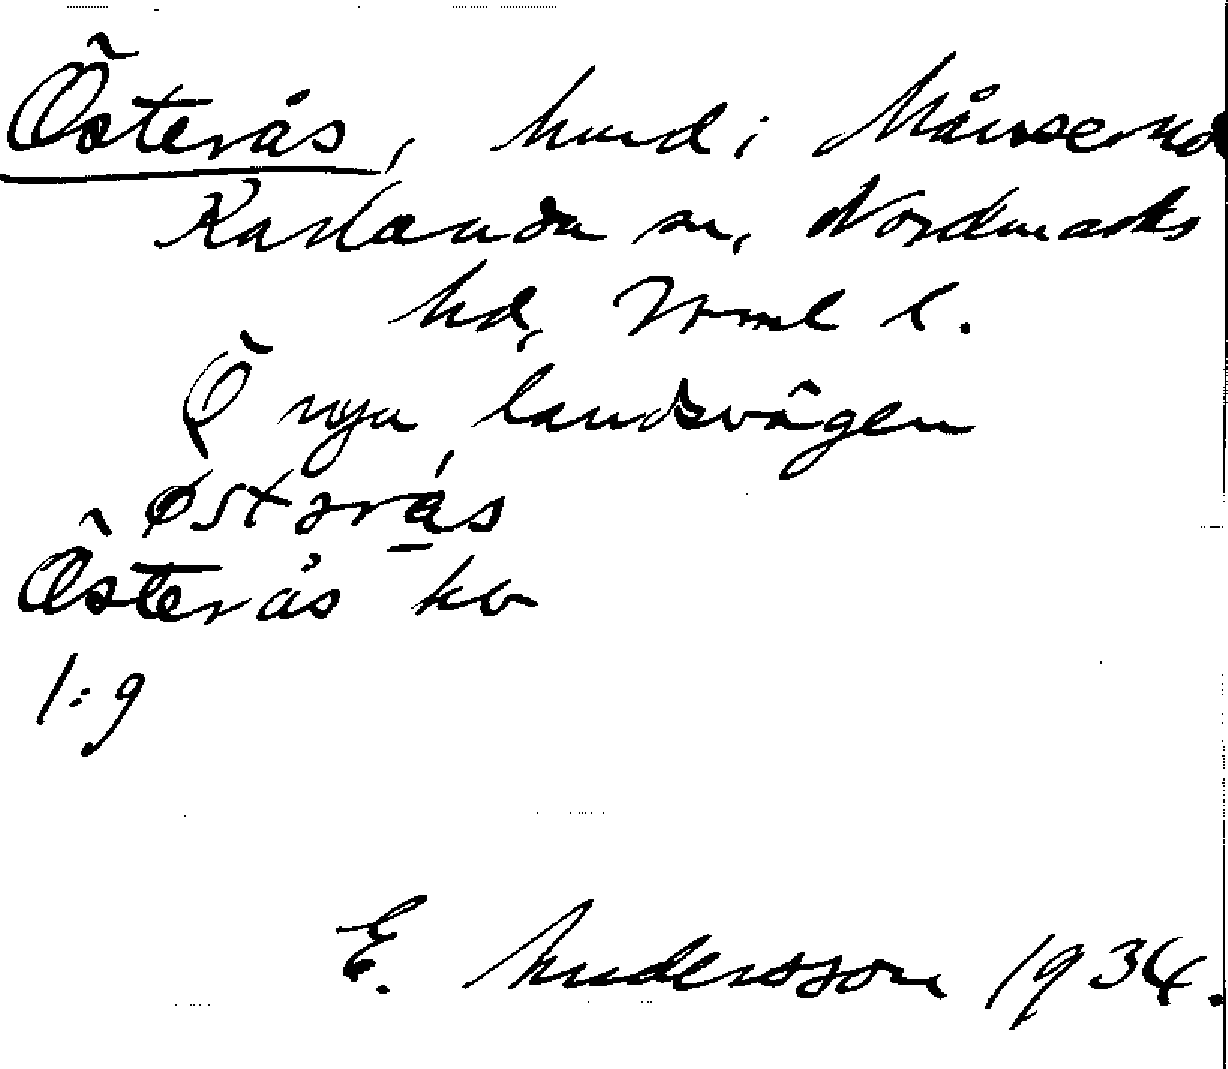 Österås, hmd i Månserud
Karlanda sn, Nordmarks
hd, Vrml l.
Ö nya landsvägen
østərás
Österås ko
1:9
E. Andersson 1934.